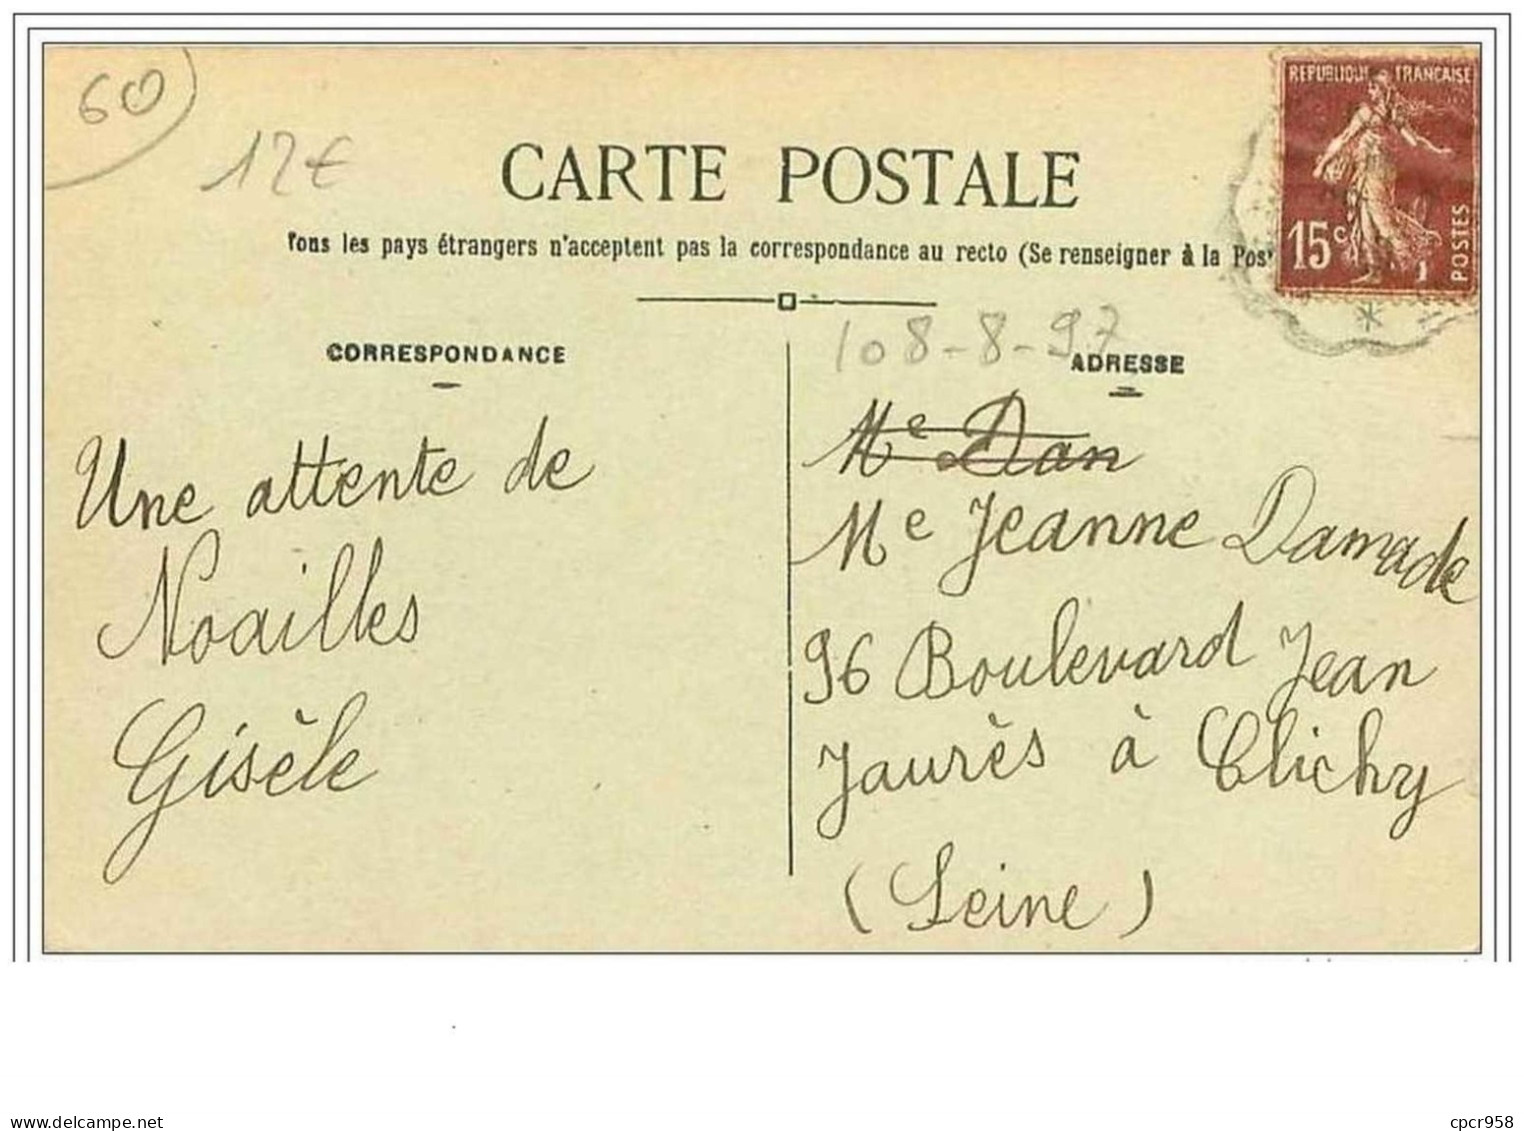 60
12€
CARTE POSTALE
Tous les pays étrangers n'acceptent pas la correspondance au recto (Se renseigner à la Pos
REPUBLIQUE FRANCAISE
15c
POSTES
CORRESPONDANCE
108-8-97
ADRESSE
Une attente de
Noailles
Gisèle
Me Dan
Me Jeanne Damade
96 Boulevard Jean
Jaurès à Clichy
(Seine)
delcampe.net
cpcr958